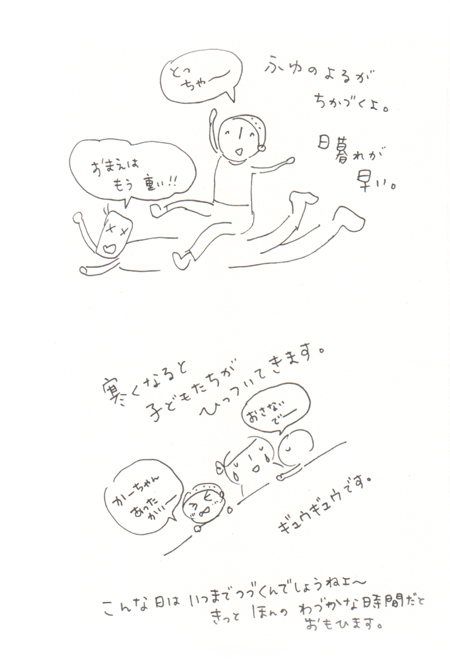 ふゆのよるが
ちかづくよ。
日暮れが
早い。
とっ
ちゃー
おまえは
もう重い!!
寒くなると
子どもたちが
ひっついてきます。
おさない
でー
かーちゃん
あった
かいー
ギュウギュウです。
こんな日はいつまでつづくんでしょうねェ〜
きっとほんのわづかな時間だと
おもひます。